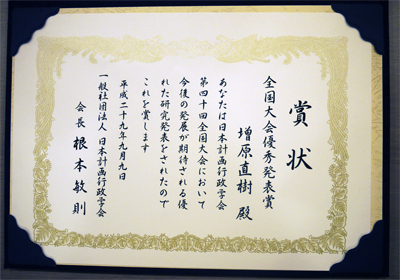 賞状
全国大会優秀発表賞
増原直樹 殿
あなたは日本計画行政学会
第四十回全国大会において
今後の発展が期待される優
れた研究発表をされたので
これを賞します
平成二十九年九月九日
一般社団法人 日本計画行政学会
会長 根本敏則